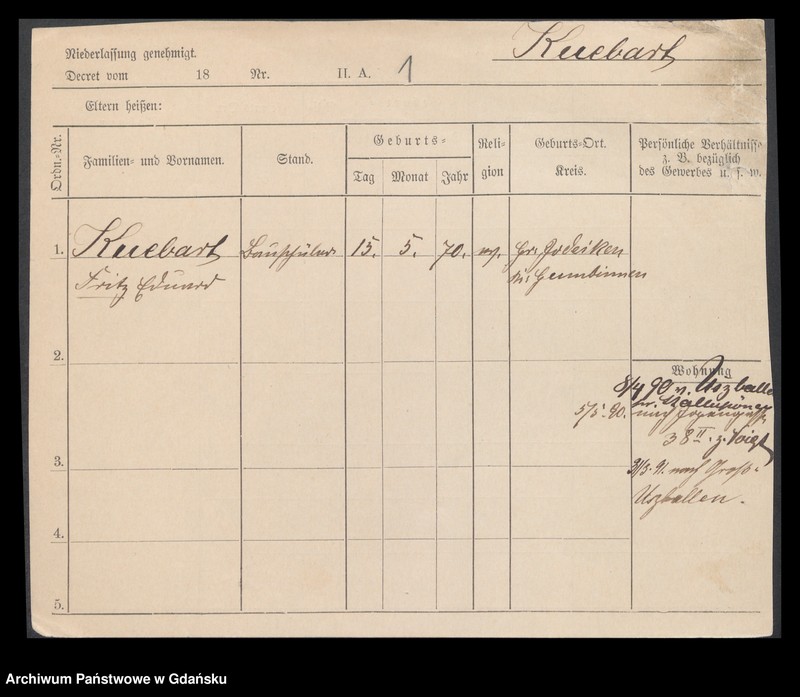 Kuebart
Niederlassung genehmigt.
Decret vom 18 Nr. II. A. 1
Eltern heißen:
Ordn.-Nr.
Familien- und Vornamen.
Stand.
Geburts-
Tag Monat Jahr
Reli-
gion
Geburts-Ort.
Kreis.
Persönliche Verhältnisse
z. B. bezüglich
des Gewerbes u. s. w.
1. Kuebart Bauschüler 15. 5. 70. ev.
Fritz Eduard Gumbinnen
2.
Wohnung
8/4 90 v. Uszballen
Kr. Stallupönen
5/5. 90. nach
38 II. z. Voigt
3.
31/3. 91. nach Groß-
Uszballen.
4.
5.
Archiwum Państwowe w Gdańsku